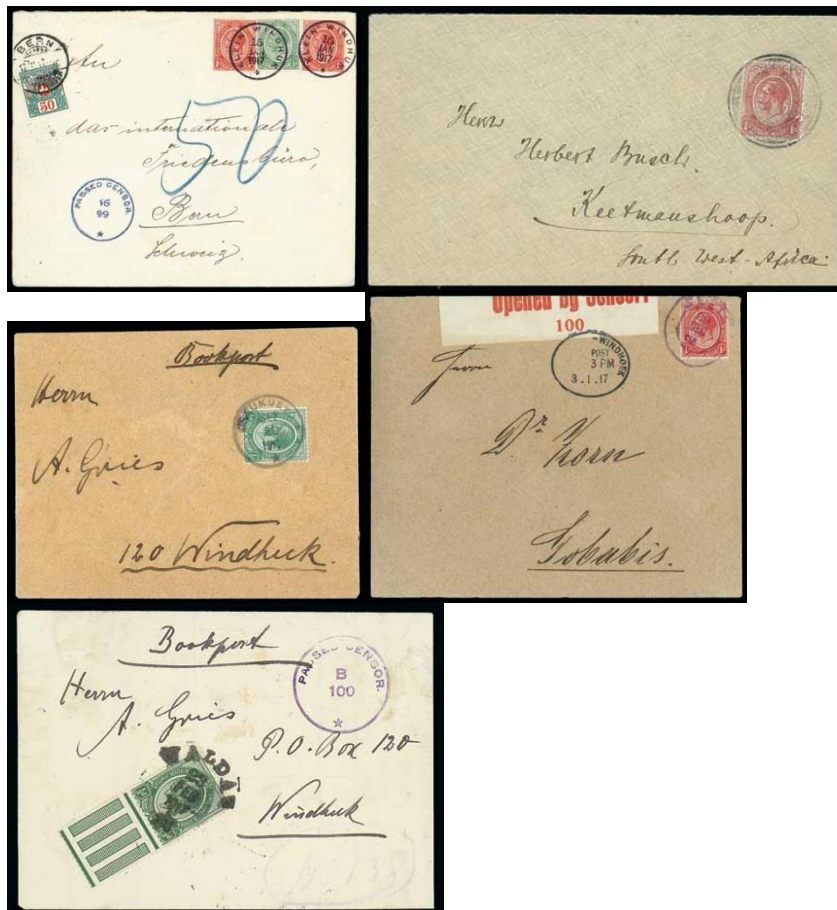 BERN
50
KLEIN WINDHUK
15
JAN
1917
KLEIN WINDHUK
15
JAN
1917
An
50
das internationale
Friedensbüro,
Bern
Schweiz.
PASSED CENSOR.
16
99
Herrn
Herbert Busch.
Keetmanshoop.
South-West-Africa.
Bookpost
Herrn
A. Gries
120 Windhuk.
Opened by Censor.
100
WINDHOEK
POST
3 PM
3.1.17
Herrn
Dr. Korn
Gobabis.
Bookpost
PASSED CENSOR.
B
100
Herrn
A. Gries
P.O. Box 120
Windhuk
FEB